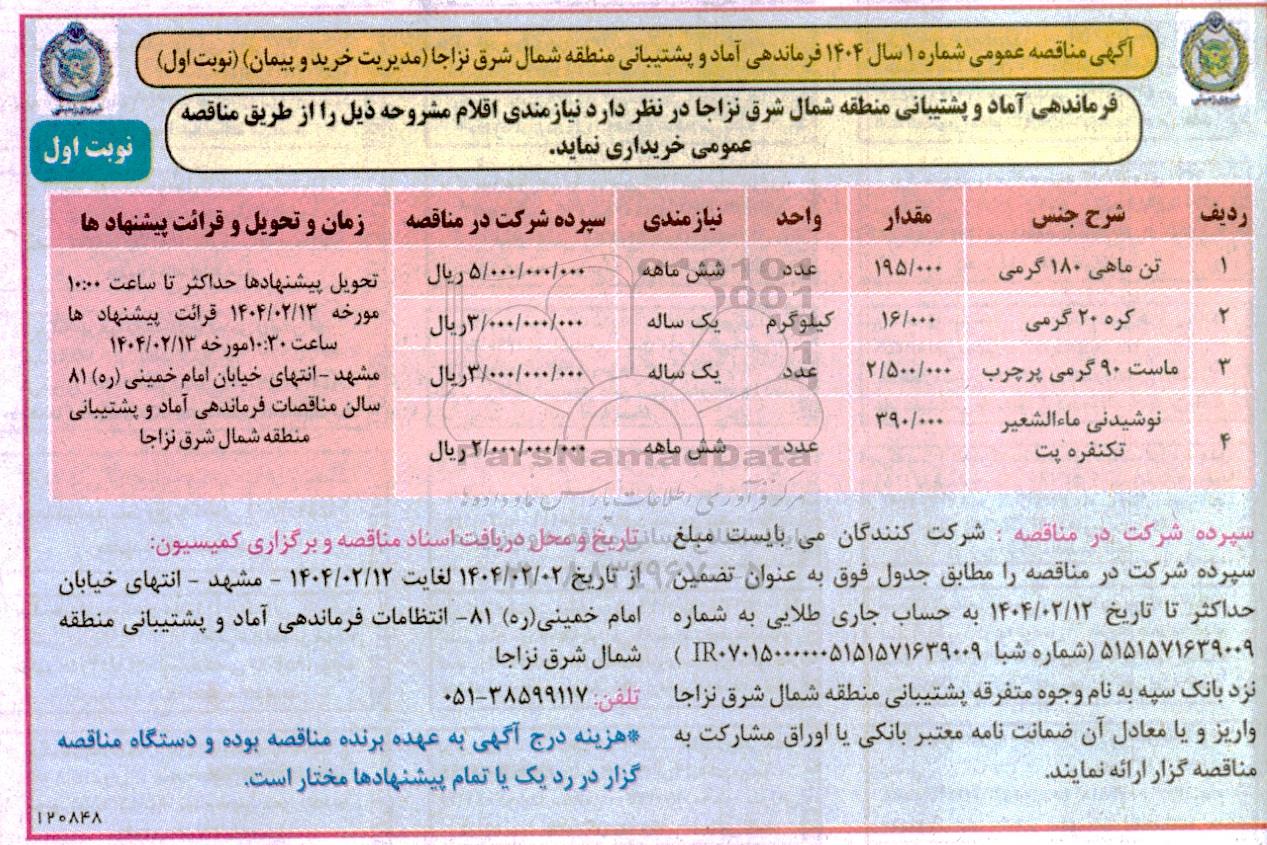 آگهی مناقصه عمومی شماره ۱ سال ۱۴۰۴ فرماندهی آماد و پشتیبانی منطقه شمال شرق نزاجا (مدیریت خرید و پیمان) (نوبت اول)
فرماندهی آماد و پشتیبانی منطقه شمال شرق نزاجا در نظر دارد نیازمندی اقلام مشروحه ذیل را از طریق مناقصه
عمومی خریداری نماید.
نوبت اول
ردیف شرح جنس مقدار واحد نیازمندی سپرده شرکت در مناقصه زمان و تحویل و قرائت پیشنهاد ها
۱ تن ماهی ۱۸۰ گرمی ۱۹۵/۰۰۰ عدد شش ماهه ۵/۰۰۰/۰۰۰/۰۰۰ ریال
۲ کره ۲۰ گرمی ۱۶/۰۰۰ کیلوگرم یک ساله ۳/۰۰۰/۰۰۰/۰۰۰ریال
۳ ماست ۹۰ گرمی پرچرب ۲/۵۰۰/۰۰۰ عدد یک ساله ۳/۰۰۰/۰۰۰/۰۰۰ریال
۴ نوشیدنی ماءالشعیر
تکنفره پت ۳۹۰/۰۰۰ عدد شش ماهه ۲/۰۰۰/۰۰۰/۰۰۰ ریال
تحویل پیشنهادها حداکثر تا ساعت ۱۰:۰۰
مورخه ۱۴۰۴/۰۲/۱۳ قرائت پیشنهاد ها
ساعت ۱۰:۳۰مورخه ۱۴۰۴/۰۲/۱۳
مشهد -انتهای خیابان امام خمینی (ره) ۸۱
سالن مناقصات فرماندهی آماد و پشتیبانی
منطقه شمال شرق نزاجا
ParsNamadData
سپرده شرکت در مناقصه : شرکت کنندگان می بایست مبلغ
سپرده شرکت در مناقصه را مطابق جدول فوق به عنوان تضمین
حداکثر تا تاریخ ۱۴۰۴/۰۲/۱۲ به حساب جاری طلایی به شماره
۵۱۵۱۵۷۱۶۳۹۰۰۹ (شماره شبا IR۰۷۰۱۵۰۰۰۰۰۰۵۱۵۱۵۷۱۶۳۹۰۰۹ )
نزد بانک سپه به نام وجوه متفرقه پشتیبانی منطقه شمال شرق نزاجا
واریز و یا معادل آن ضمانت نامه معتبر بانکی یا اوراق مشارکت به
مناقصه گزار ارائه نمایند.
تاریخ و محل دریافت اسناد مناقصه و برگزاری کمیسیون:
از تاریخ ۱۴۰۴/۰۲/۰۲ لغایت ۱۴۰۴/۰۲/۱۲ - مشهد - انتهای خیابان
امام خمینی(ره) ۸۱- انتظامات فرماندهی آماد و پشتیبانی منطقه
شمال شرق نزاجا
تلفن: ۰۵۱-۳۸۵۹۹۱۱۷
*هزینه درج آگهی به عهده برنده مناقصه بوده و دستگاه مناقصه
گزار در رد یک یا تمام پیشنهادها مختار است.
۱۲۰۸۴۸